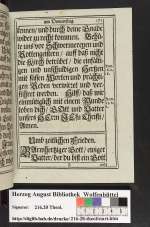 am Donnerstag. 181
kennen / und durch deine Gnade
wider zu recht kommen. Behü-
te uns vor Schwermergen und
Rottengeistern / auff daß nicht
die Kirch betrübet / die einfälti-
gen und unschuldigen Hertzen
mit süssen Worten und prächti-
gen Reden verwirret und ver-
führet werden. Hilff / daß wir
einmütiglich mit einem Munde
loben dich / GOtt und Vatter
unsers HErrn JEsu Christi /
Amen.
Umb zeitlichen Frieden.
BArmhertziger Gott / ewiger
Vatter / der du bist ein Gott
Herzog August Bibliothek Wolfenbüttel
Signatur: 216.28 Theol.